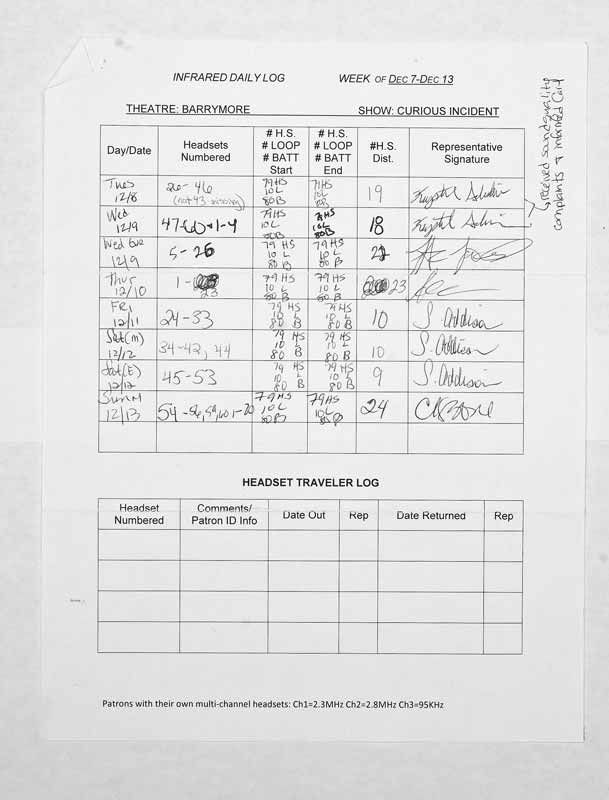 INFRARED DAILY LOG WEEK OF DEC 7-DEC 13
THEATRE: BARRYMORE SHOW: CURIOUS INCIDENT
Day/Date Headsets Numbered # H.S. # LOOP # BATT Start # H.S. # LOOP # BATT End #H.S. Dist. Representative Signature
Tues 12/8 26-46 (not 43 missing) 79HS 10L 80B 79HS 10L 80B 19 Krystal
Wed 12/9 47-60 1-4 79HS 10L 80B 79HS 10L 80B 18 Krystal
Wed Eve 12/9 5-26 79 HS 10 L 80 B 79 HS 10 L 80 B 22
Thur 12/10 1-23 79HS 10 L 80 B 79HS 10 L 80 B 23
FRI 12/11 24-33 79 HS 10 L 80 B 79 HS 10 L 80 B 10 S. Addison
Sat(m) 12/12 34-42, 44 79 HS 10 L 80 B 79 HS 10 L 80 B 10 S. Addison
Sat(E) 12/12 45-53 79 HS 10 L 80 B 79 HS 10 L 80 B 9 S. Addison
Sun M 12/13 54-56, 59, 60 1-20 79HS 10L 80B 79HS 10L 80B 24
received sound quality
complaints & informed Carl
HEADSET TRAVELER LOG
Headset Numbered Comments/ Patron ID Info Date Out Rep Date Returned Rep
Patrons with their own multi-channel headsets: Ch1=2.3MHz Ch2=2.8MHz Ch3=95KHz